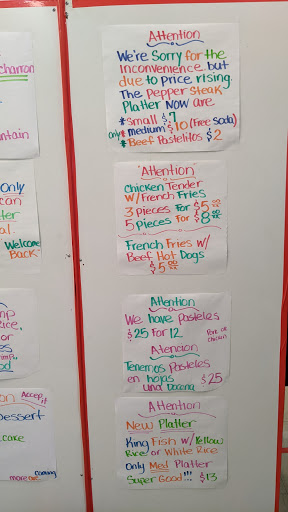 charron
ntain
Only
can
ter
al.
Welcome
Back
mp
ice,
or
es
imp,
od
on Accept it
Dessert
care
coming
more
Attention
We're Sorry for the
inconvenience but
due to price rising.
The Pepper Steak
Platter Now are
*Small $7
only *medium $10 (Free Soda)
*Beef Pastelitos $2
"Attention"
Chicken Tender
w/French Fries
3 pieces For $5.00
5 pieces For $8.00
French Fries w/
Beef Hot Dogs
$5.00
Attention
We have Pasteles
$25 for 12
Pork or
chicken
Atencion
Tenemos Pasteles
en hojas $25
una Docena
Attention
New Platter
King Fish w/Yellow
Rice or White Rice
only Med Platter
Super Good!!! $13